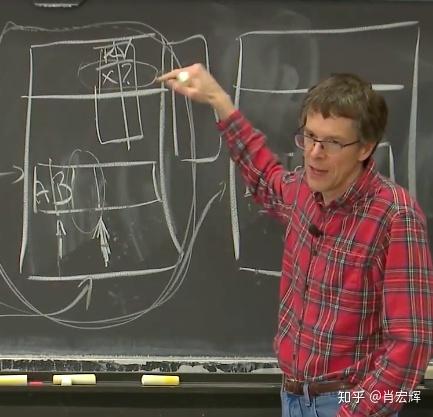 KV
X ?
AB
知乎 @肖宏辉